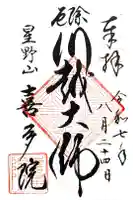 奉拝
令和七年
八月二十四日
厄除
川越大師
星野山
喜多院